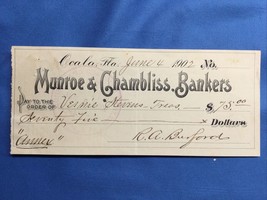 Ocala, Fla, June 4 1902 No.
Munroe & Chambliss, Bankers
PAY TO THE ORDER OF Vernie Stevens Treas. $75.00
Seventy five Dollars
"Annex" R.A. Burford